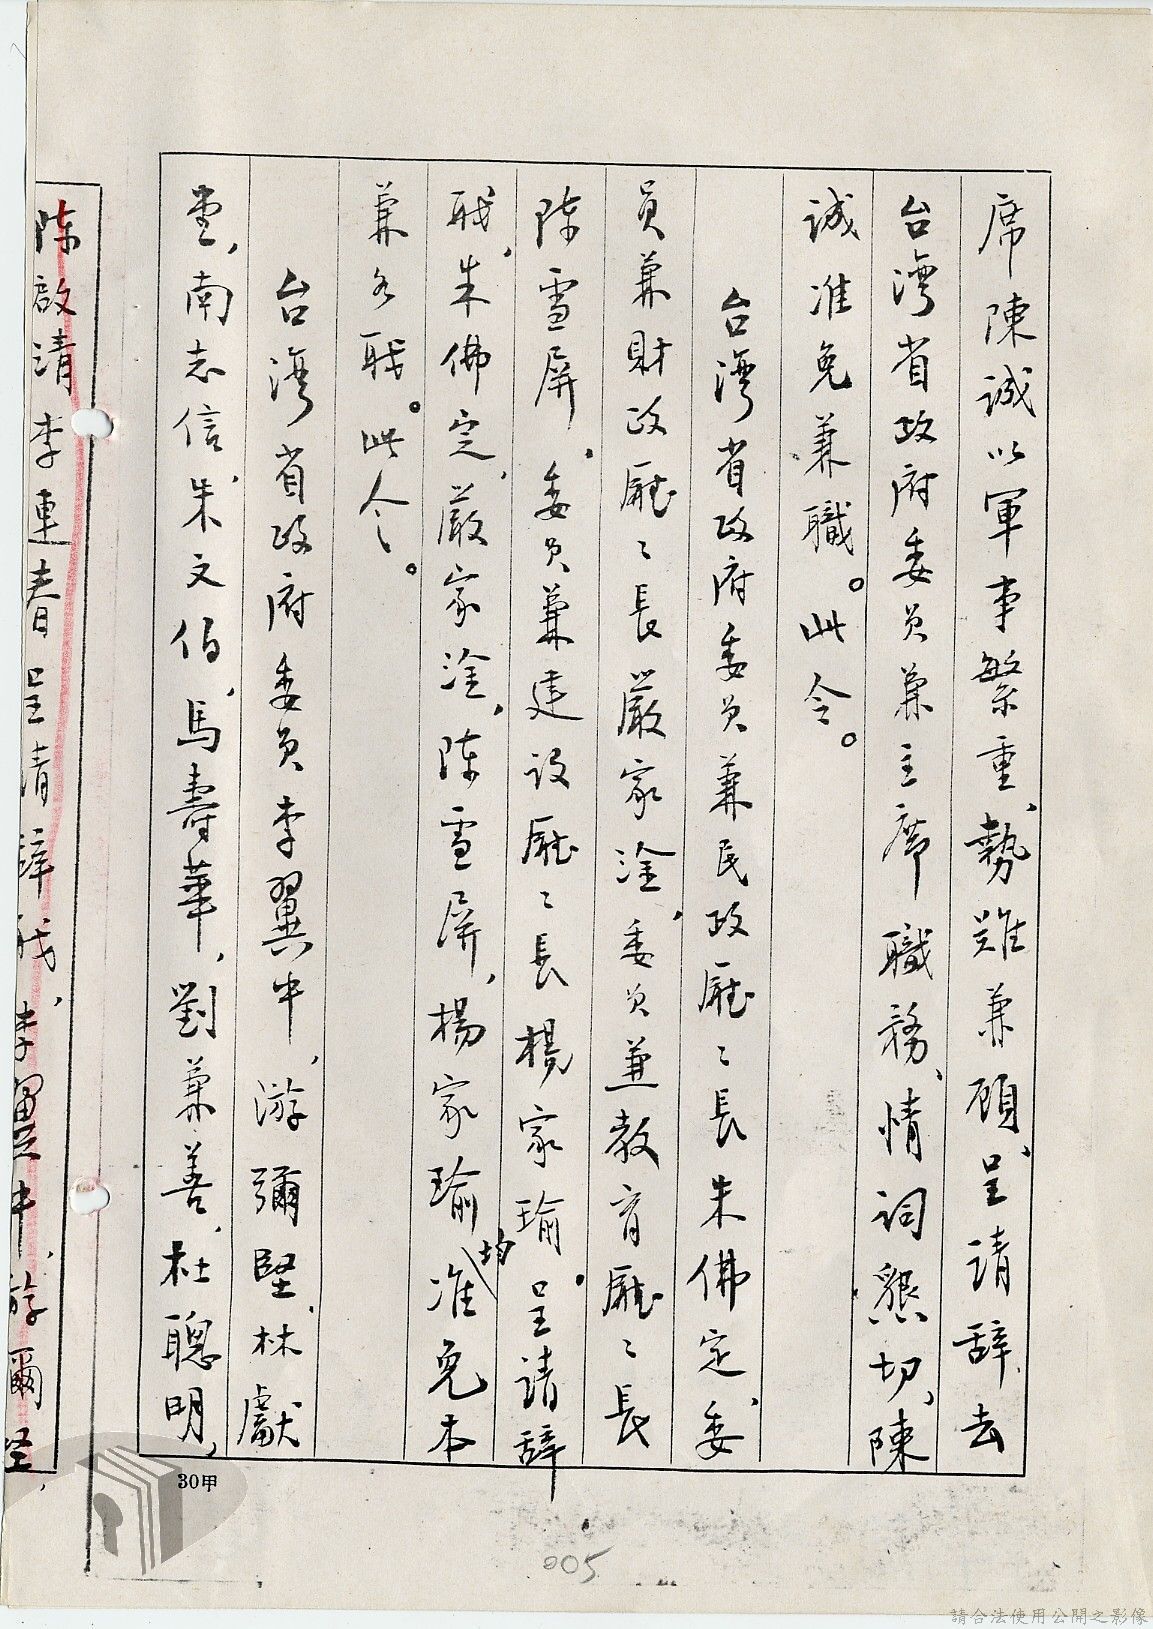 席陳誠以軍事繁重、勢難兼顧、呈請辞去
台湾省政府委员兼主席職務、情词懇切、陳
誠准免兼職。此令。
台湾省政府委员兼民政廰〻長朱佛定、委
員兼財政廰〻長嚴家淦、委员兼教育廰〻長
陈雪屏、委员兼建设廰〻長楊家瑜。呈請辞
职、朱佛定、嚴家淦、陈雪屏、楊家瑜均准免本
兼各职。此令。
台湾省政府委员李翼中、游彌堅、林獻
堂、南志信、朱文伯、馬壽華、劉兼善、杜聰明、
陈啟清李連春呈请辞职、李翼中、游彌坚、
30甲
005
請合法使用公開之影像